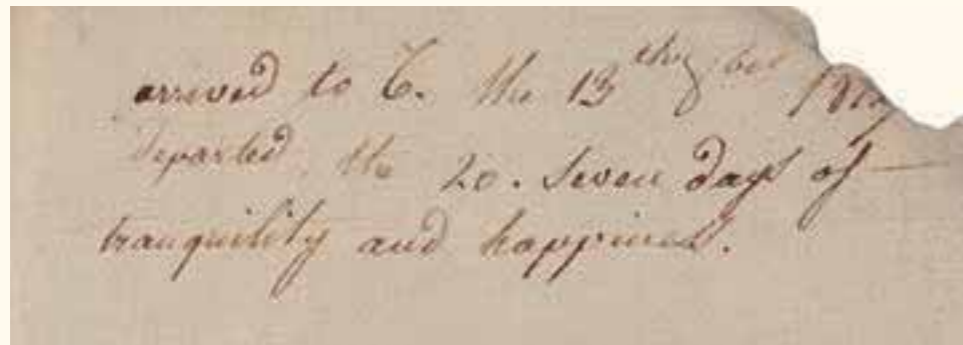 arrived to C. the 13th
departed, the 20. Seven days of
tranquility and happiness.